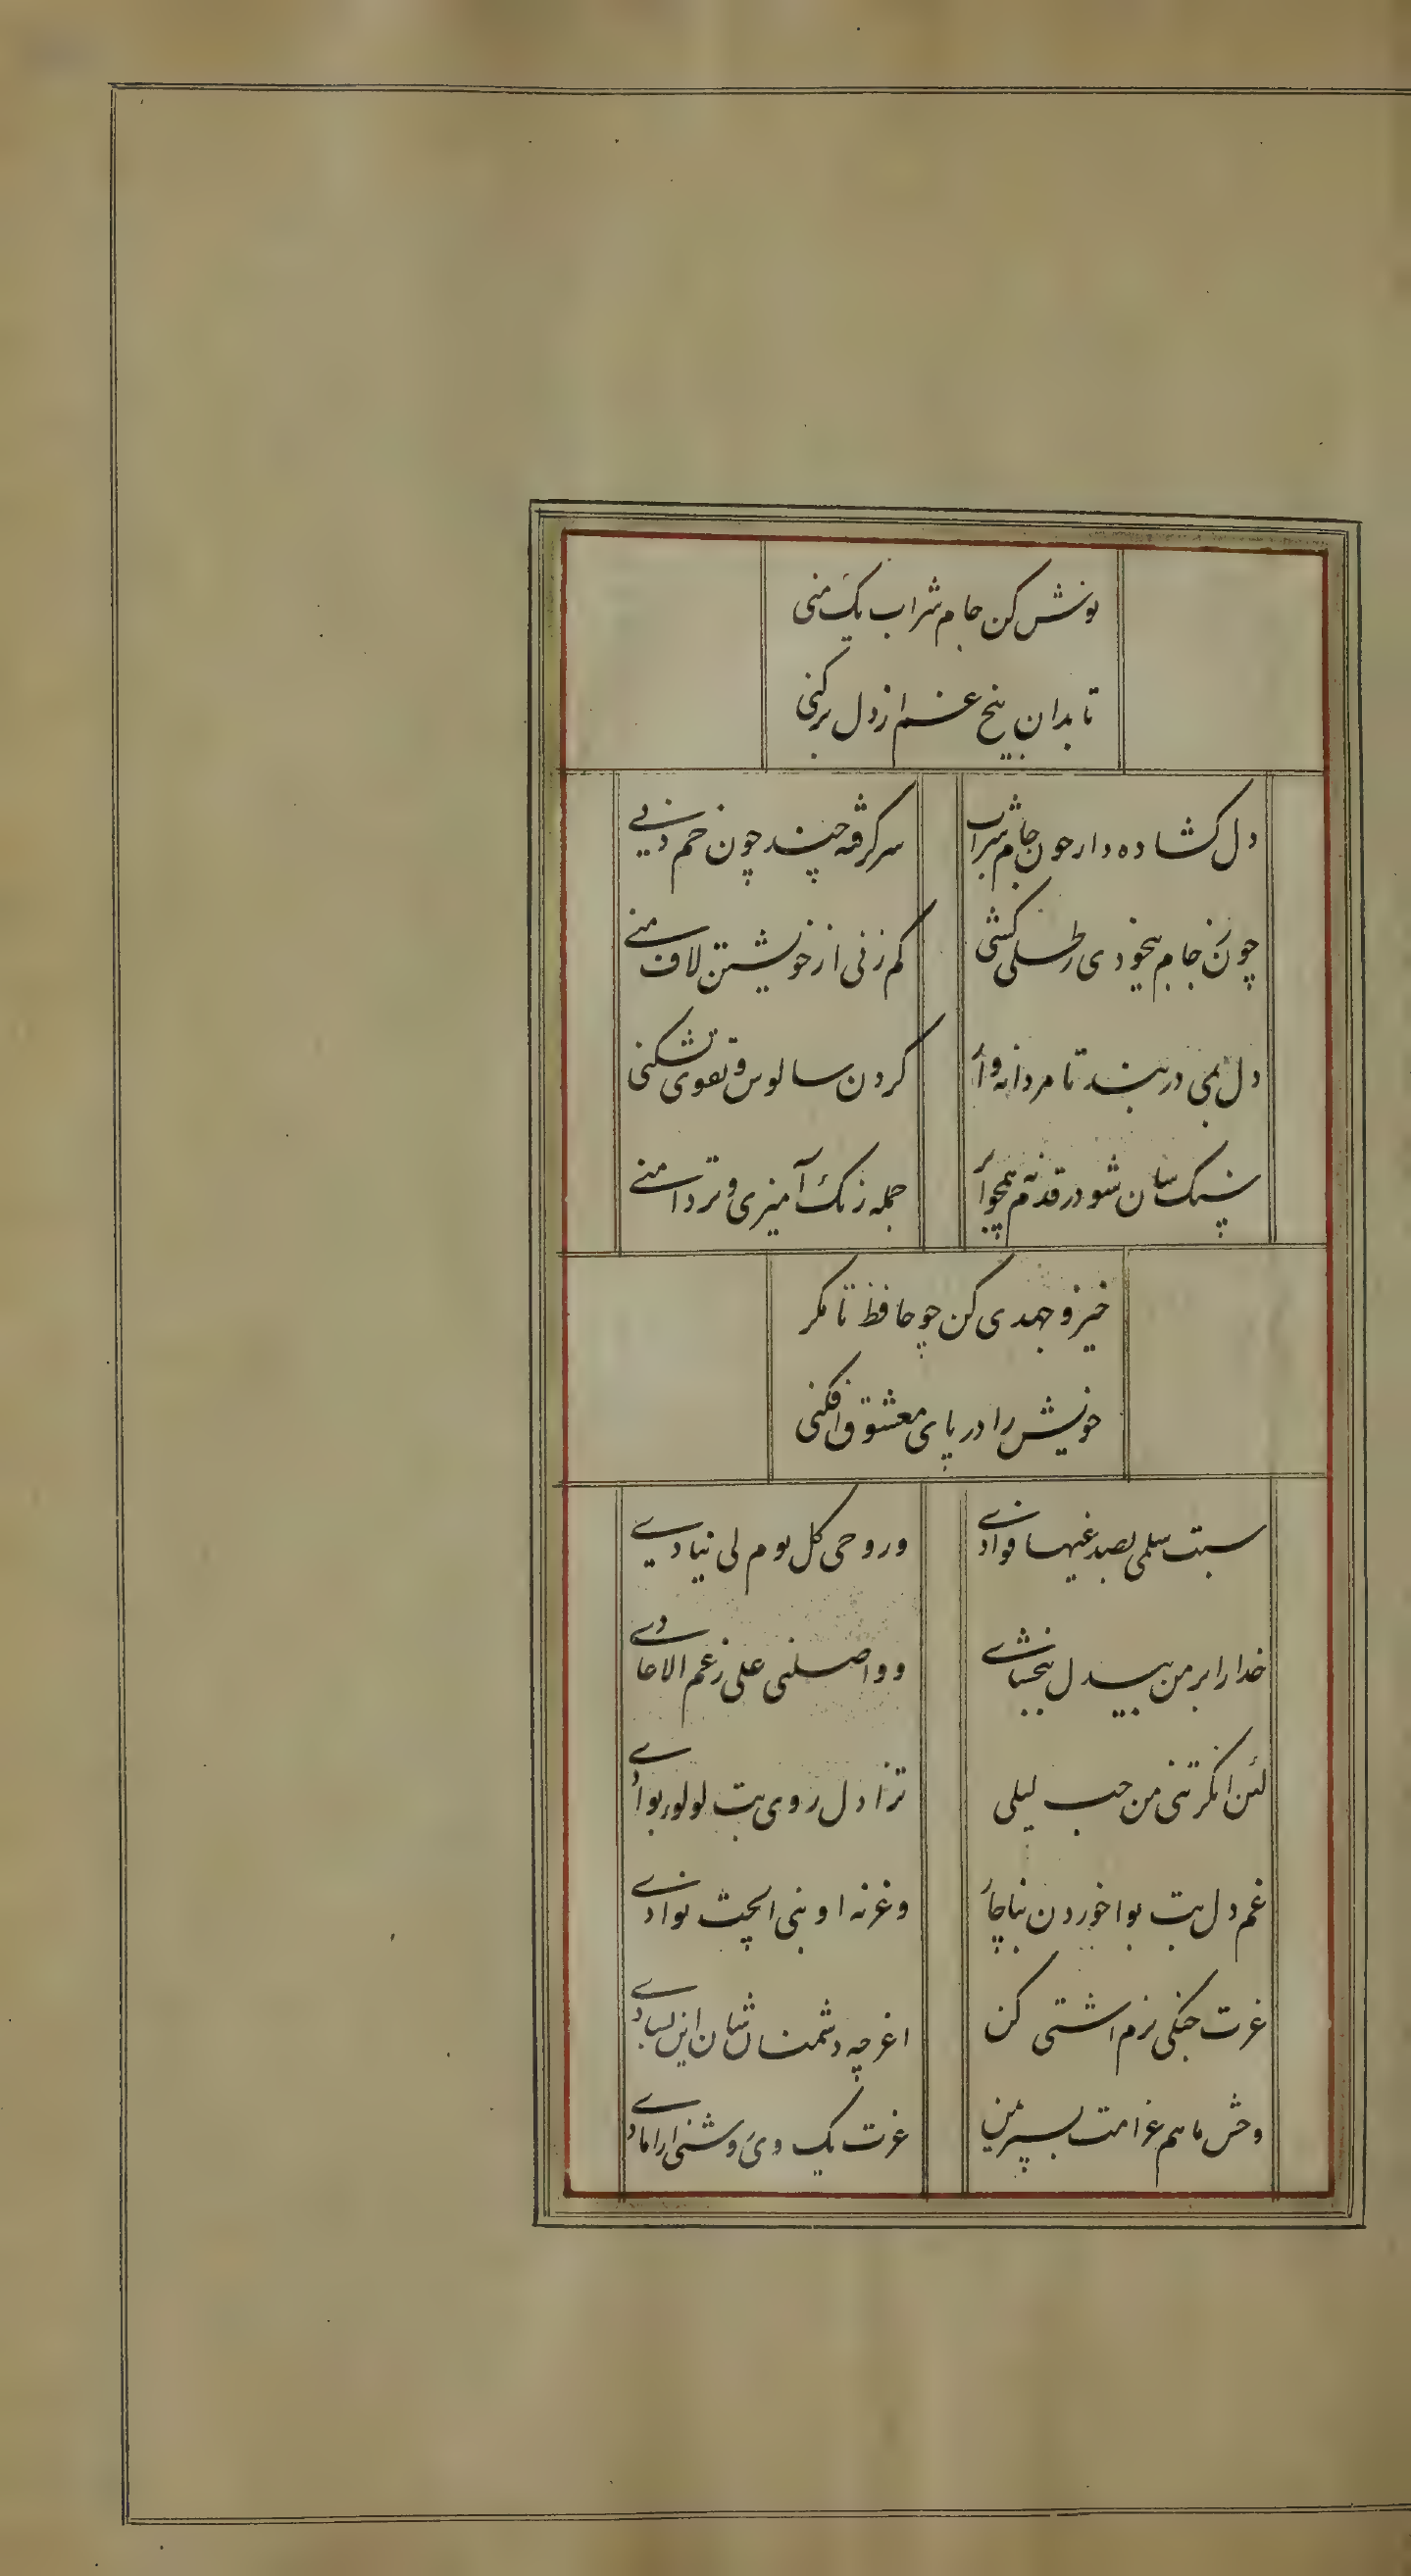 نوش کن جام شراب یک منی
تا بدان بیخ غم از دل برکنی
دل کشاده دار چون جام شراب
سر کرفته چند چون خم دنیی
چون ز جام بیخودی رطلی کشی
کم زنی از خویشتن لاف منی
دل بمی در بند تا مردانه وار
کردن سالوس و تقوی بشکنی
سنک سان شو در قدم نه همچو آب
جمله رنک آمیزی و تردامنی
خیز و جهدی کن چو حافظ تا مکر
خویش را در پای معشوق افکنی
سبت سلمی بصدغیها فوادی
وروحی کل یوم لی ینادی
خدارا بر من بیدل ببخشای
وواصلنی علی زعم الاعادی
لئن انکرتنی من حب لیلی
تزا دل روی بت لولو بوادی
غم دل بت بوا خوردن بناچار
وغرنه او بنی انچت نوادی
غرت جنکی نرم اشتی کن
اغرچه دشمنان شان این
وخش ما هم غرامت بسپریمن
غرت یک وی